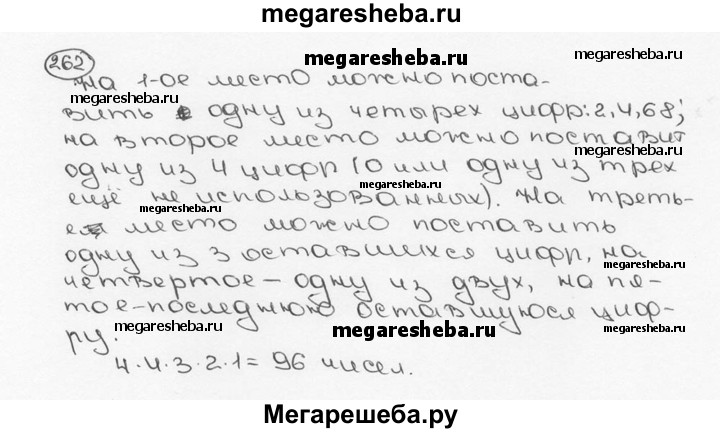 megaresheba.ru
262
megaresheba.ru
megaresheba.ru
На 1-ое место можно поста-
megaresheba.ru
вить одну из четырех цифр: 2,4,68;
на второе место можно поставит
megaresheba.ru
одну из 4 цифр (0 или одну из трех
megaresheba.ru
ещё не использованных). На треть-
megaresheba.ru
е место можно поставить
одну из 3 оставшихся цифр, на
megaresheba.ru
четвертое – одну из двух, на пя-
тое-последнюю оставшуюся циф-
megaresheba.ru
megaresheba.ru
ру.
4·4·3·2·1=96 чисел.
Мегарешеба.ру